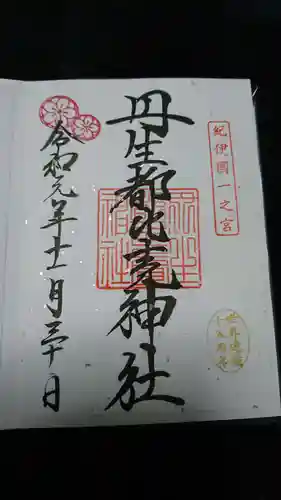 紀伊國一之宮
丹生都比売神社
令和元年十一月三十日